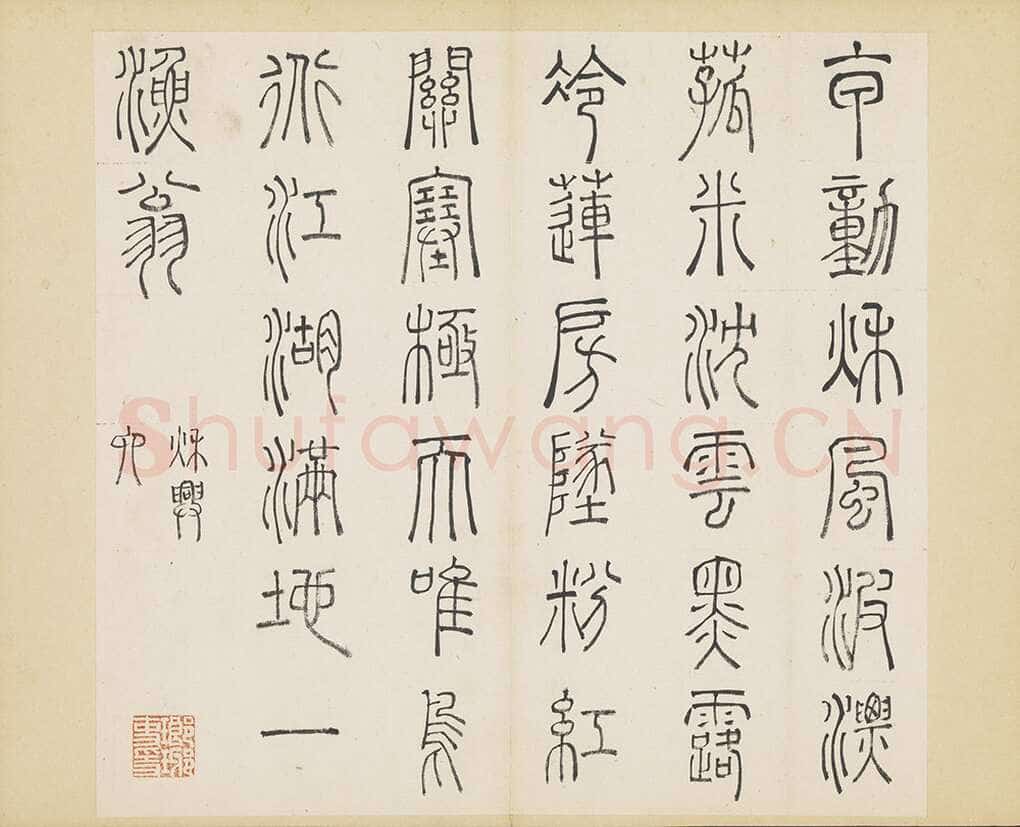 甲動秋風波漂
菰米沈雲黑露
冷蓮房墜粉紅
關塞極天唯鳥
道江湖滿地一
漁翁
秋興
Shufawang.CN